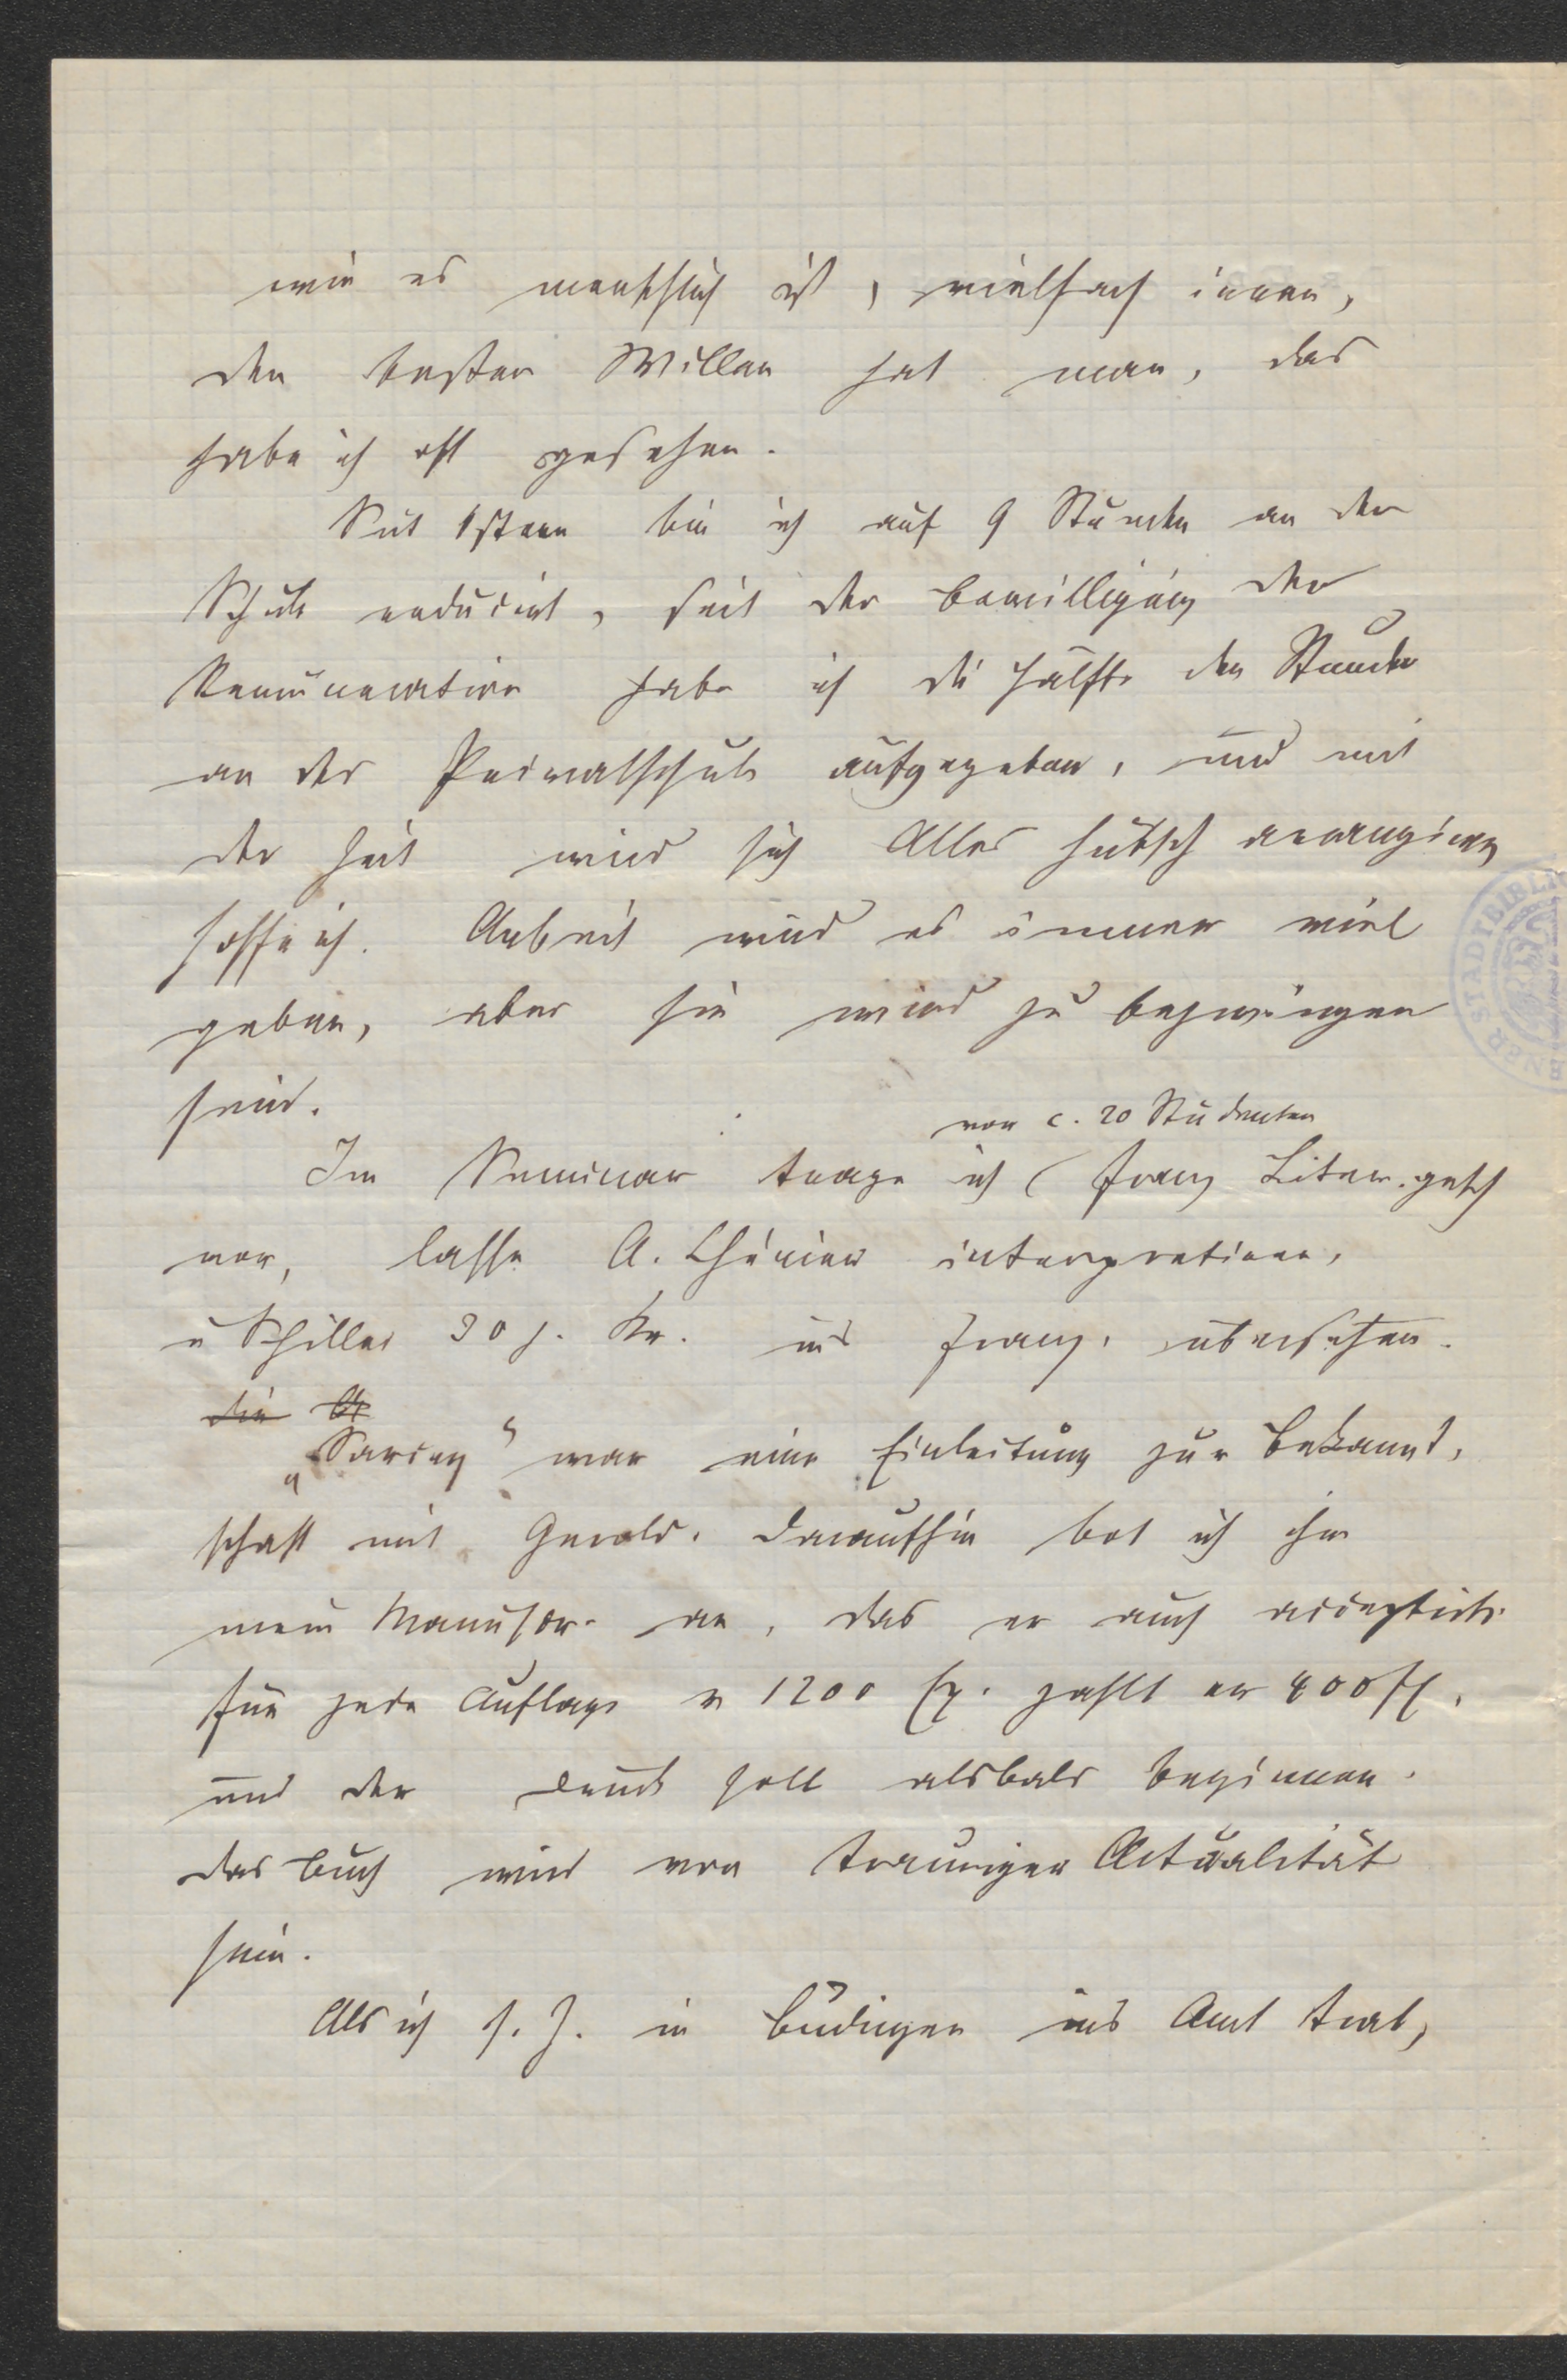 wie es menschlich ist, vielfach irren,
den besten Willen hat man, das
habe ich oft gesehen.
Seit Ostern bin ich auf 9 Stunden an der
Schule reducirt, seit der Bewilligung der
Remuneration habe ich die Hälfte der Stunden
an der Privatschule aufgegeben, und mit
der Zeit wird sich Alles hübsch arrangiren
hoffe ich. Arbeit wird es immer viel
geben, aber sie wird zu bezwingen
sein.
vor c. 20 Studenten
Im Seminar trage ich ( franz Liter. gesch
vor, lasse A. Chénier interpretiren,
u Schiller 30 j. Kr. ins Franz. übersetzen.
die
„Sarcey“ war eine Einleitung zur Bekannt-
schaft mit Gerold. Daraufhin bot ich ihm
mein Manuscr. an, das er auch acceptirte.
Für jede Auflage v 1200 Ex. zahlt er 400 fl.
und der Druck soll alsbald beginnen.
Das Buch wird von trauriger Actualität
sein.
Als ich s. Z. in Büdingen ins Amt trat,
STADTBIBLI